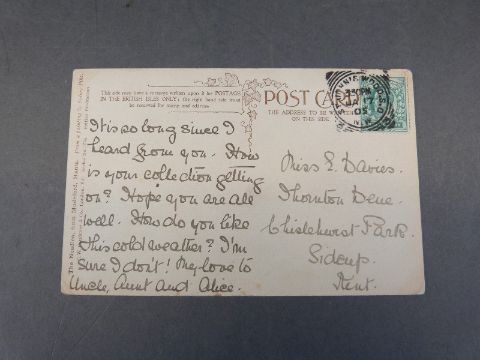 This side may have a message written upon it for POSTAGE
IN THE BRITISH ISLES ONLY; the right hand side must
be reserved for stamp and address
POST CARD
THE ADDRESS TO BE WRITTEN
ON THIS SIDE
It is so long since I
heard from you. How
is your collection getting
on? Hope you are all
well. How do you like
this cold weather? I'm
sure I don't! My love to
Uncle, Aunt and Alice.
Miss E. Davies.
Thornton Dene.
Chislehurst Park.
Sidcup.
Kent.